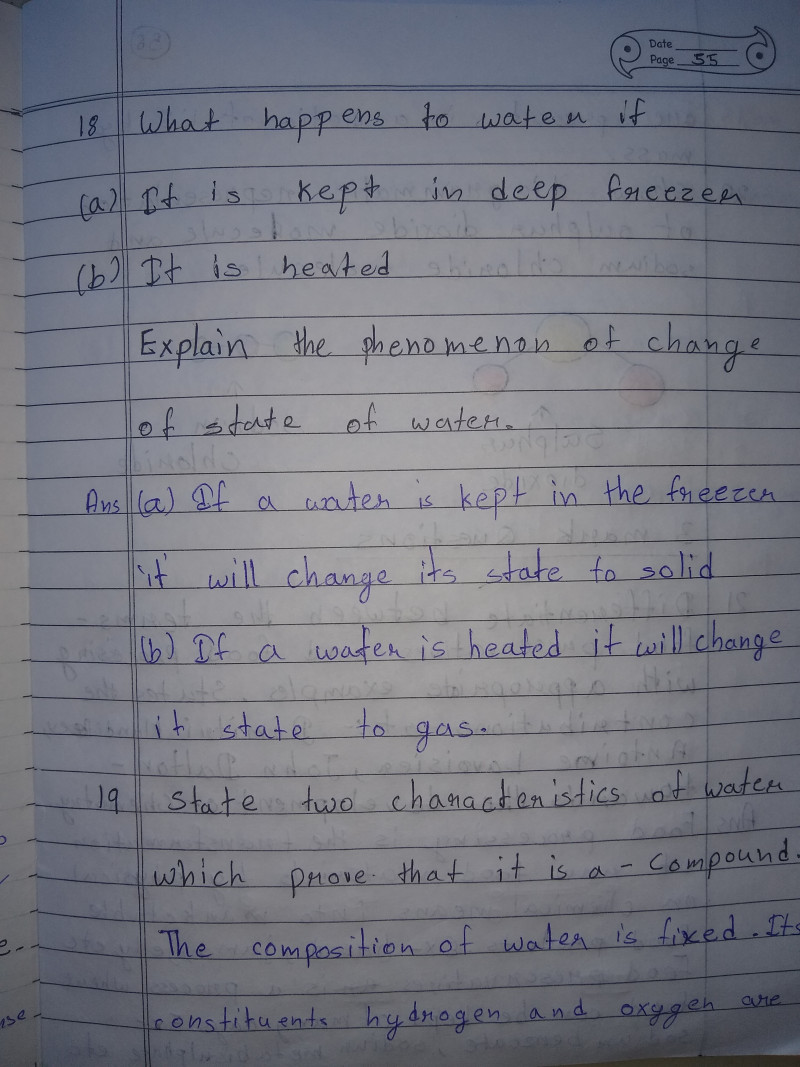 Date
Page 55
18 What happens to water if
(a) It is kept in deep freezer
(b) It is heated
Explain the phenomenon of change
of state of water.
Ans (a) If a water is kept in the freezer
'it' will change its state to solid
(b) If a water is heated it will change
it state to gas.
19 State two characteristics of water
which prove that it is a - compound.
The composition of water is fixed. Its
constituents hydrogen and oxygen are